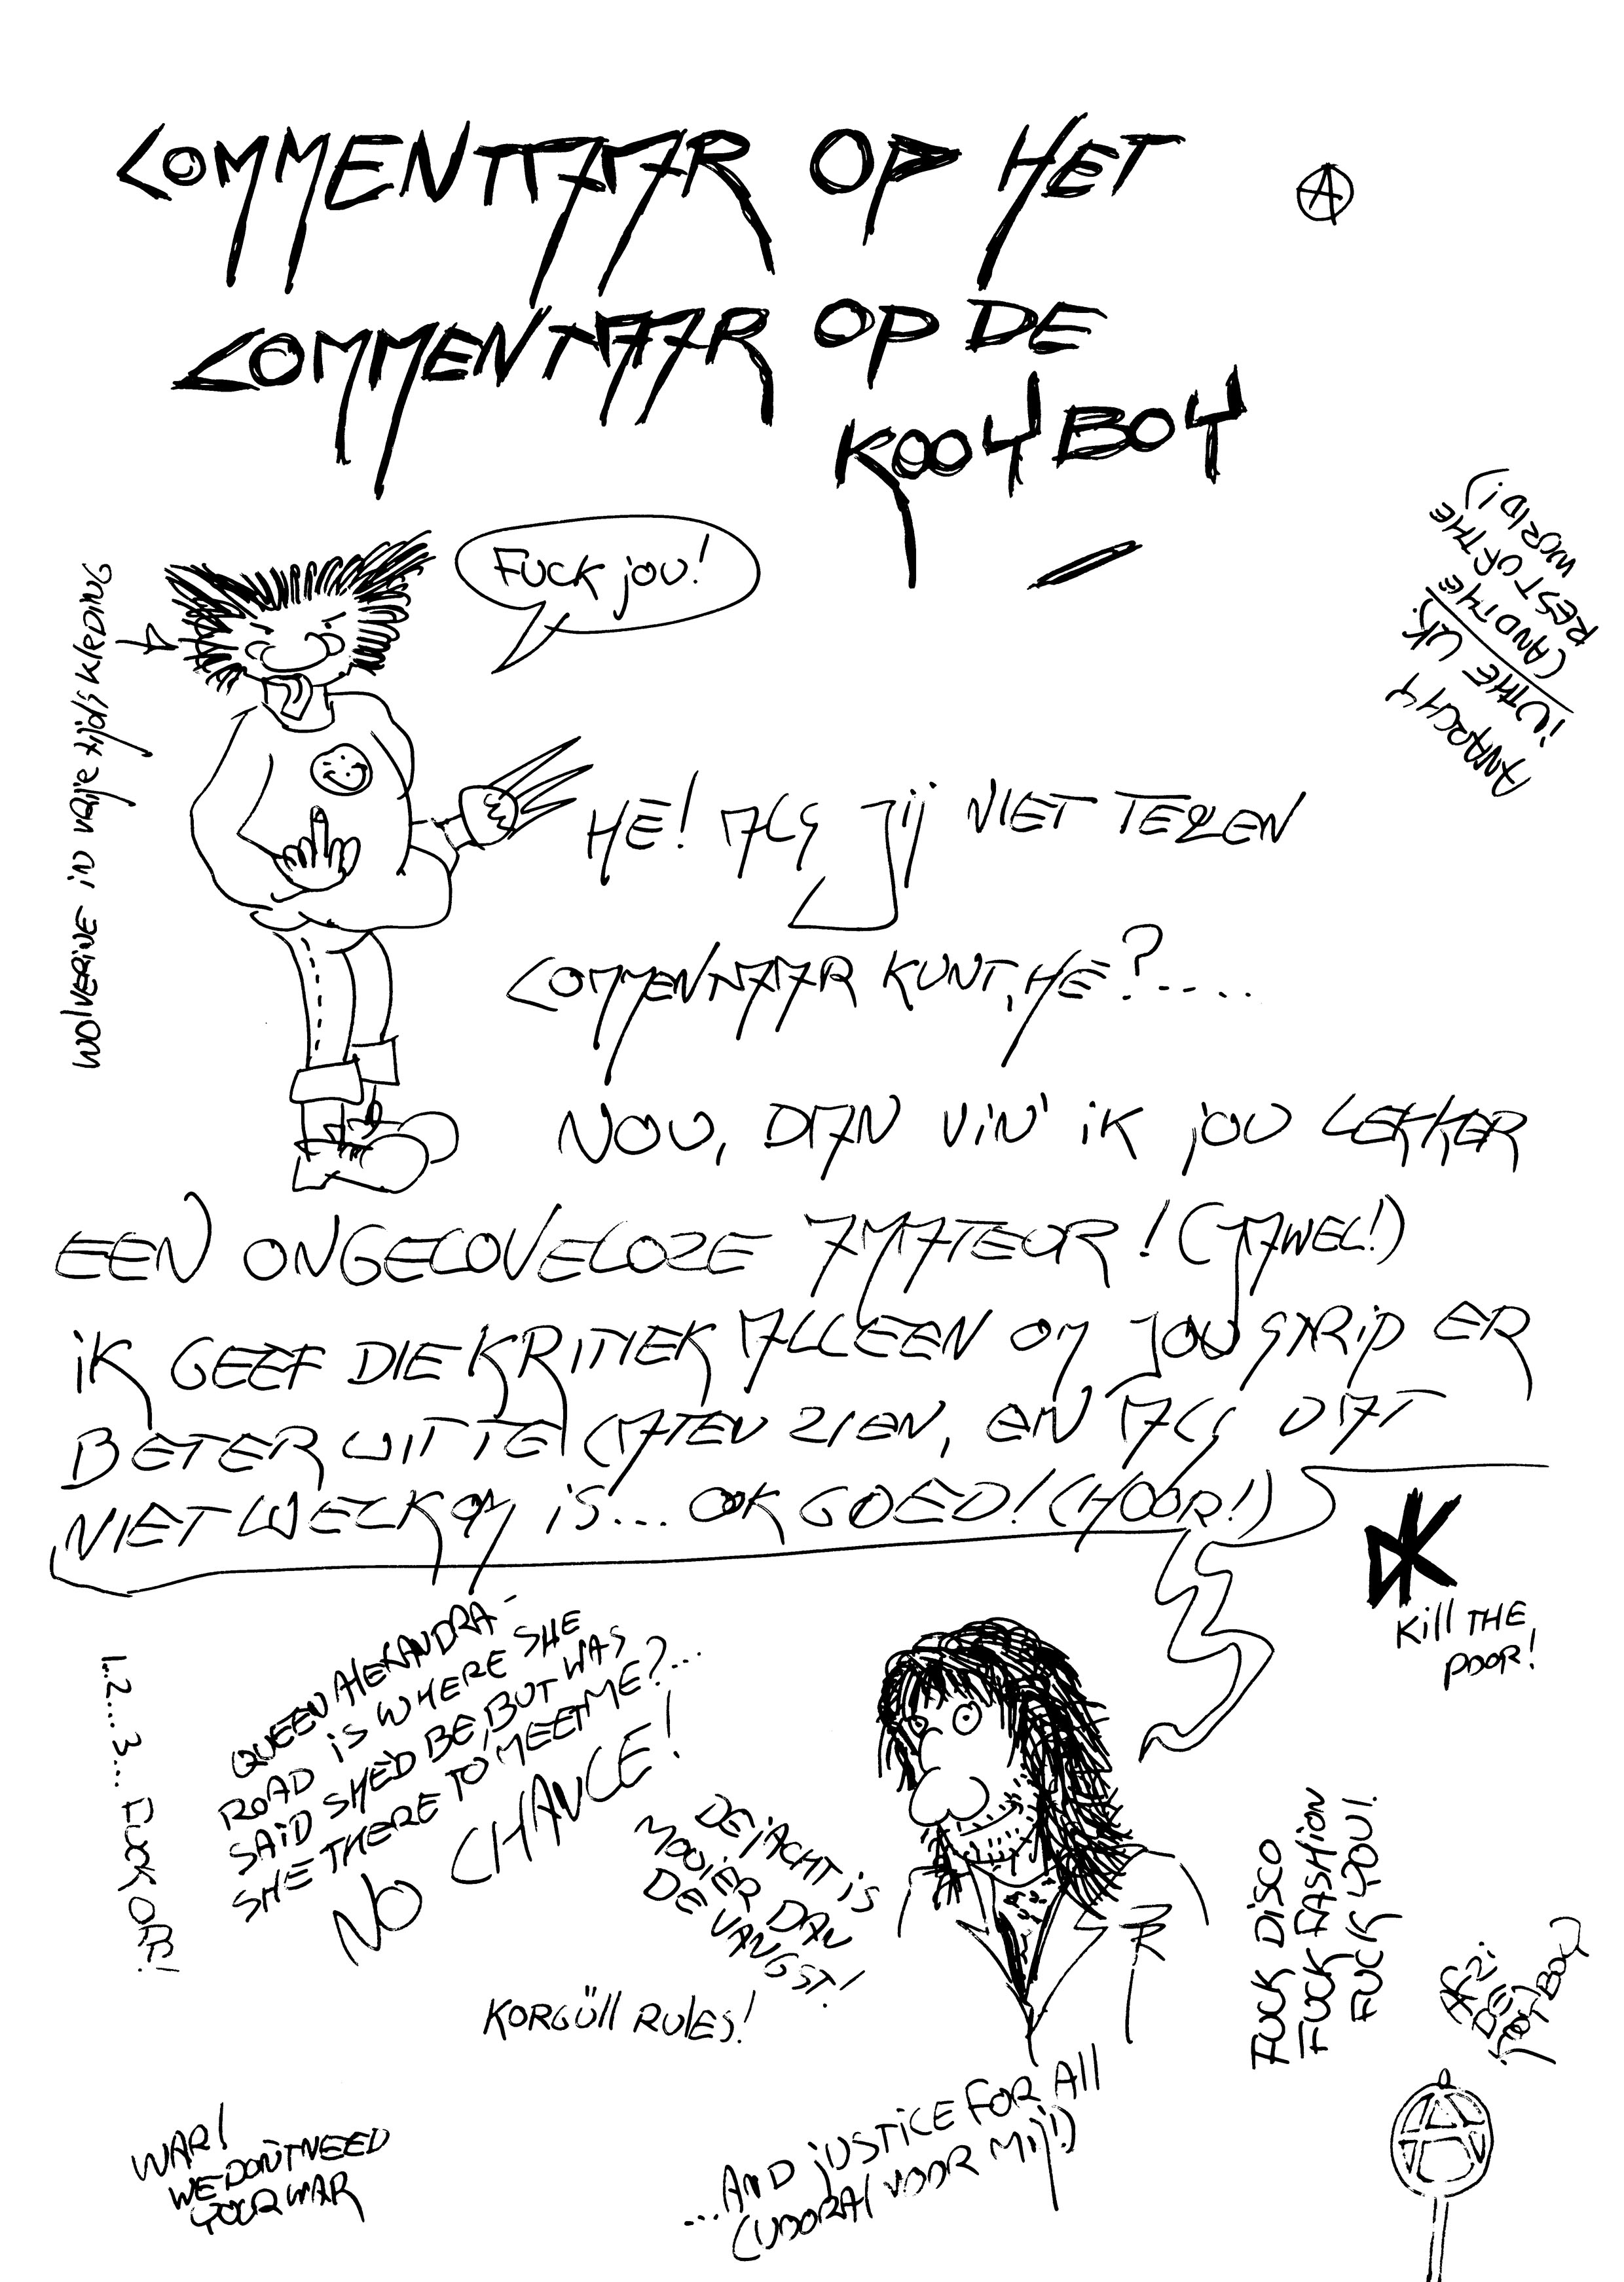 COMMENTAAR OP HET
COMMENTAAR OP DE
KOOYBOY
ANARCHY
IN THE UK
(AND THE
REST OF THE
WORLD!)
FUCK jOU!
WOLVERINE IN VRIJE TIJDS KLEDING
HE! ALS JIJ NIET TEGEN
COMMENTAAR KUNT, HE?....
NOU, DAN VIN' IK JOU LEKKER
EEN ONGELOVELOZE AMATEUR! (JAWEL!)
IK GEEF DIE KRITIEK ALLEEN OM JOU STRIP ER
BETER UIT TE LATEN ZIEN, EN ALS DAT
NIET WELKOM IS... OOK GOED! (HOOR!)
DK
Kill THE
POOR!
QUEEN ALEXANDRA-
ROAD iS WHERE SHE
SAID SHE'D BE, BUT WAS
SHE THERE TO MEET ME?...
NO CHANCE!
1..2...3... FUCK OFF!
DE JACHT iS
MOOIER DAN
DE VANGST!
KORGÜll RULES!
FUCK DISCO
FUCK FASHION
FUCK YOU!
WAR!
WE DON'T NEED
YOUR WAR
...AND JUSTICE FOR All
(VOORAL VOOR MIJ!)